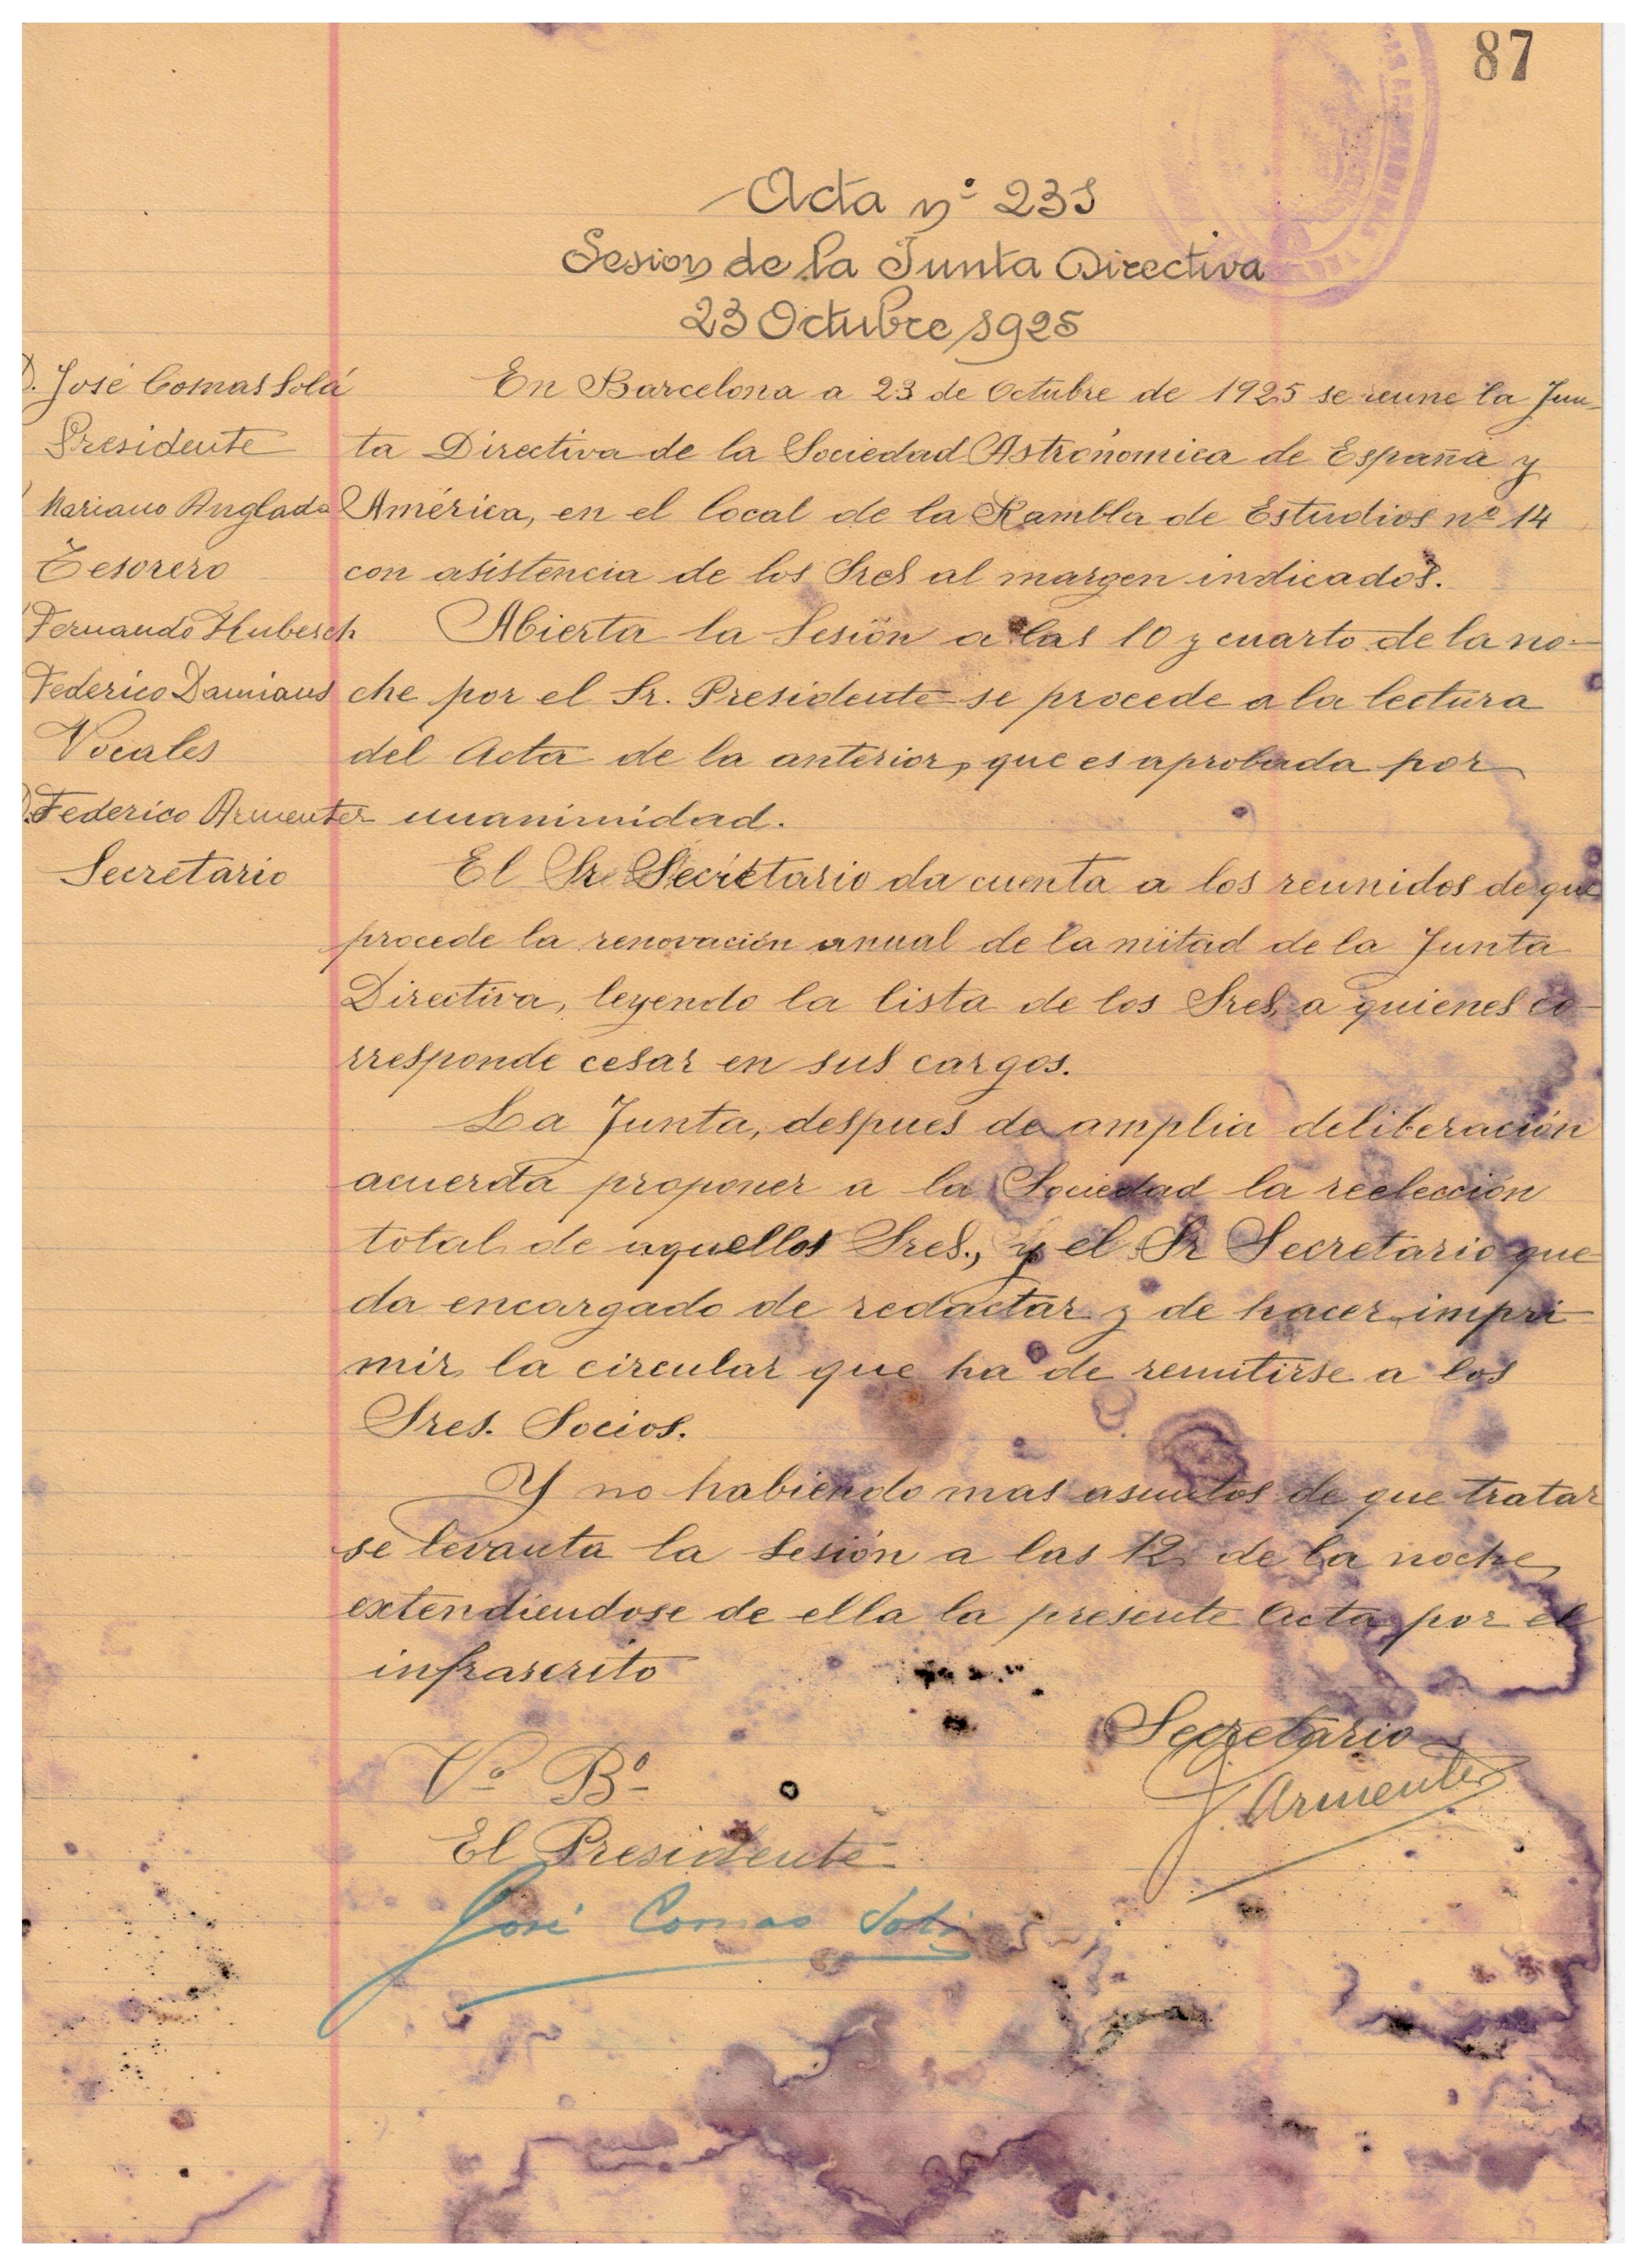 87
Acta nº 231
Sesion de la Junta Directiva
23 Octubre 1925
D. José Comas Solá
Presidente
Mariano Anglada
Tesorero
Fernando Hubesch
Federico Damians
Vocales
D. Federico Armenter
Secretario
En Barcelona a 23 de Octubre de 1925 se reune la Jun-
ta Directiva de la Sociedad Astronómica de España y
América, en el local de la Rambla de Estudios nº 14
con asistencia de los Sres al margen indicados.
Abierta la Sesión a las 10 y cuarto de la no-
che por el Sr. Presidente se procede a la lectura
del Acta de la anterior, que es aprobada por
unanimidad.
El Sr Secretario da cuenta a los reunidos de que
procede la renovación anual de la mitad de la Junta
Directiva, leyendo la lista de los Sres, a quienes co-
rresponde cesar en sus cargos.
La Junta, despues de amplia deliberación
acuerda proponer a la Sociedad la reelección
total de aquellos Sres., y el Sr Secretario que
da encargado de redactar y de hacer impri-
mir la circular que ha de remitirse a los
Sres. Socios.
Y no habiendo mas asuntos de que tratar
se levanta la Sesión a las 12 de la noche,
extendiendose de ella la presente Acta, por el
infrascrito
Secretario
F. Armenter
Vº Bº
El Presidente
José Comas Solá